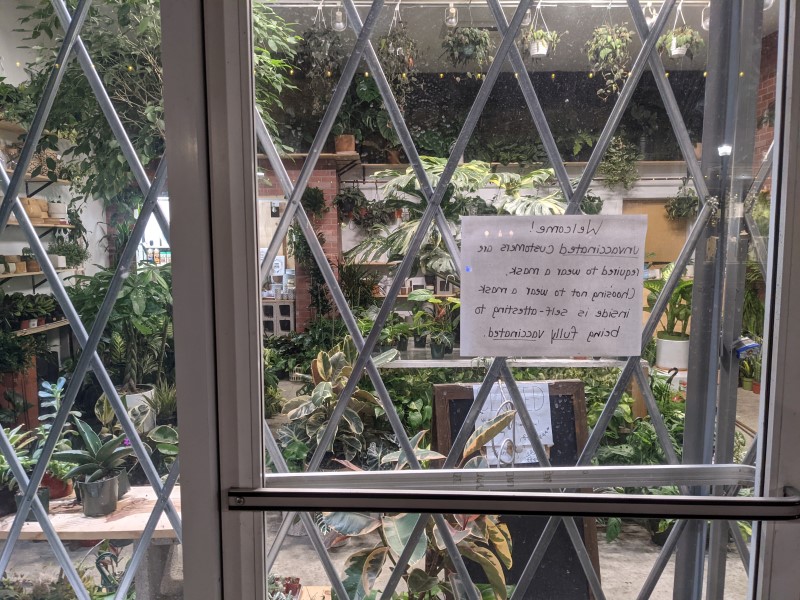 Welcome!
unvaccinated customers are
required to wear a mask.
Choosing not to wear a mask
inside is self-attesting to
being fully vaccinated.